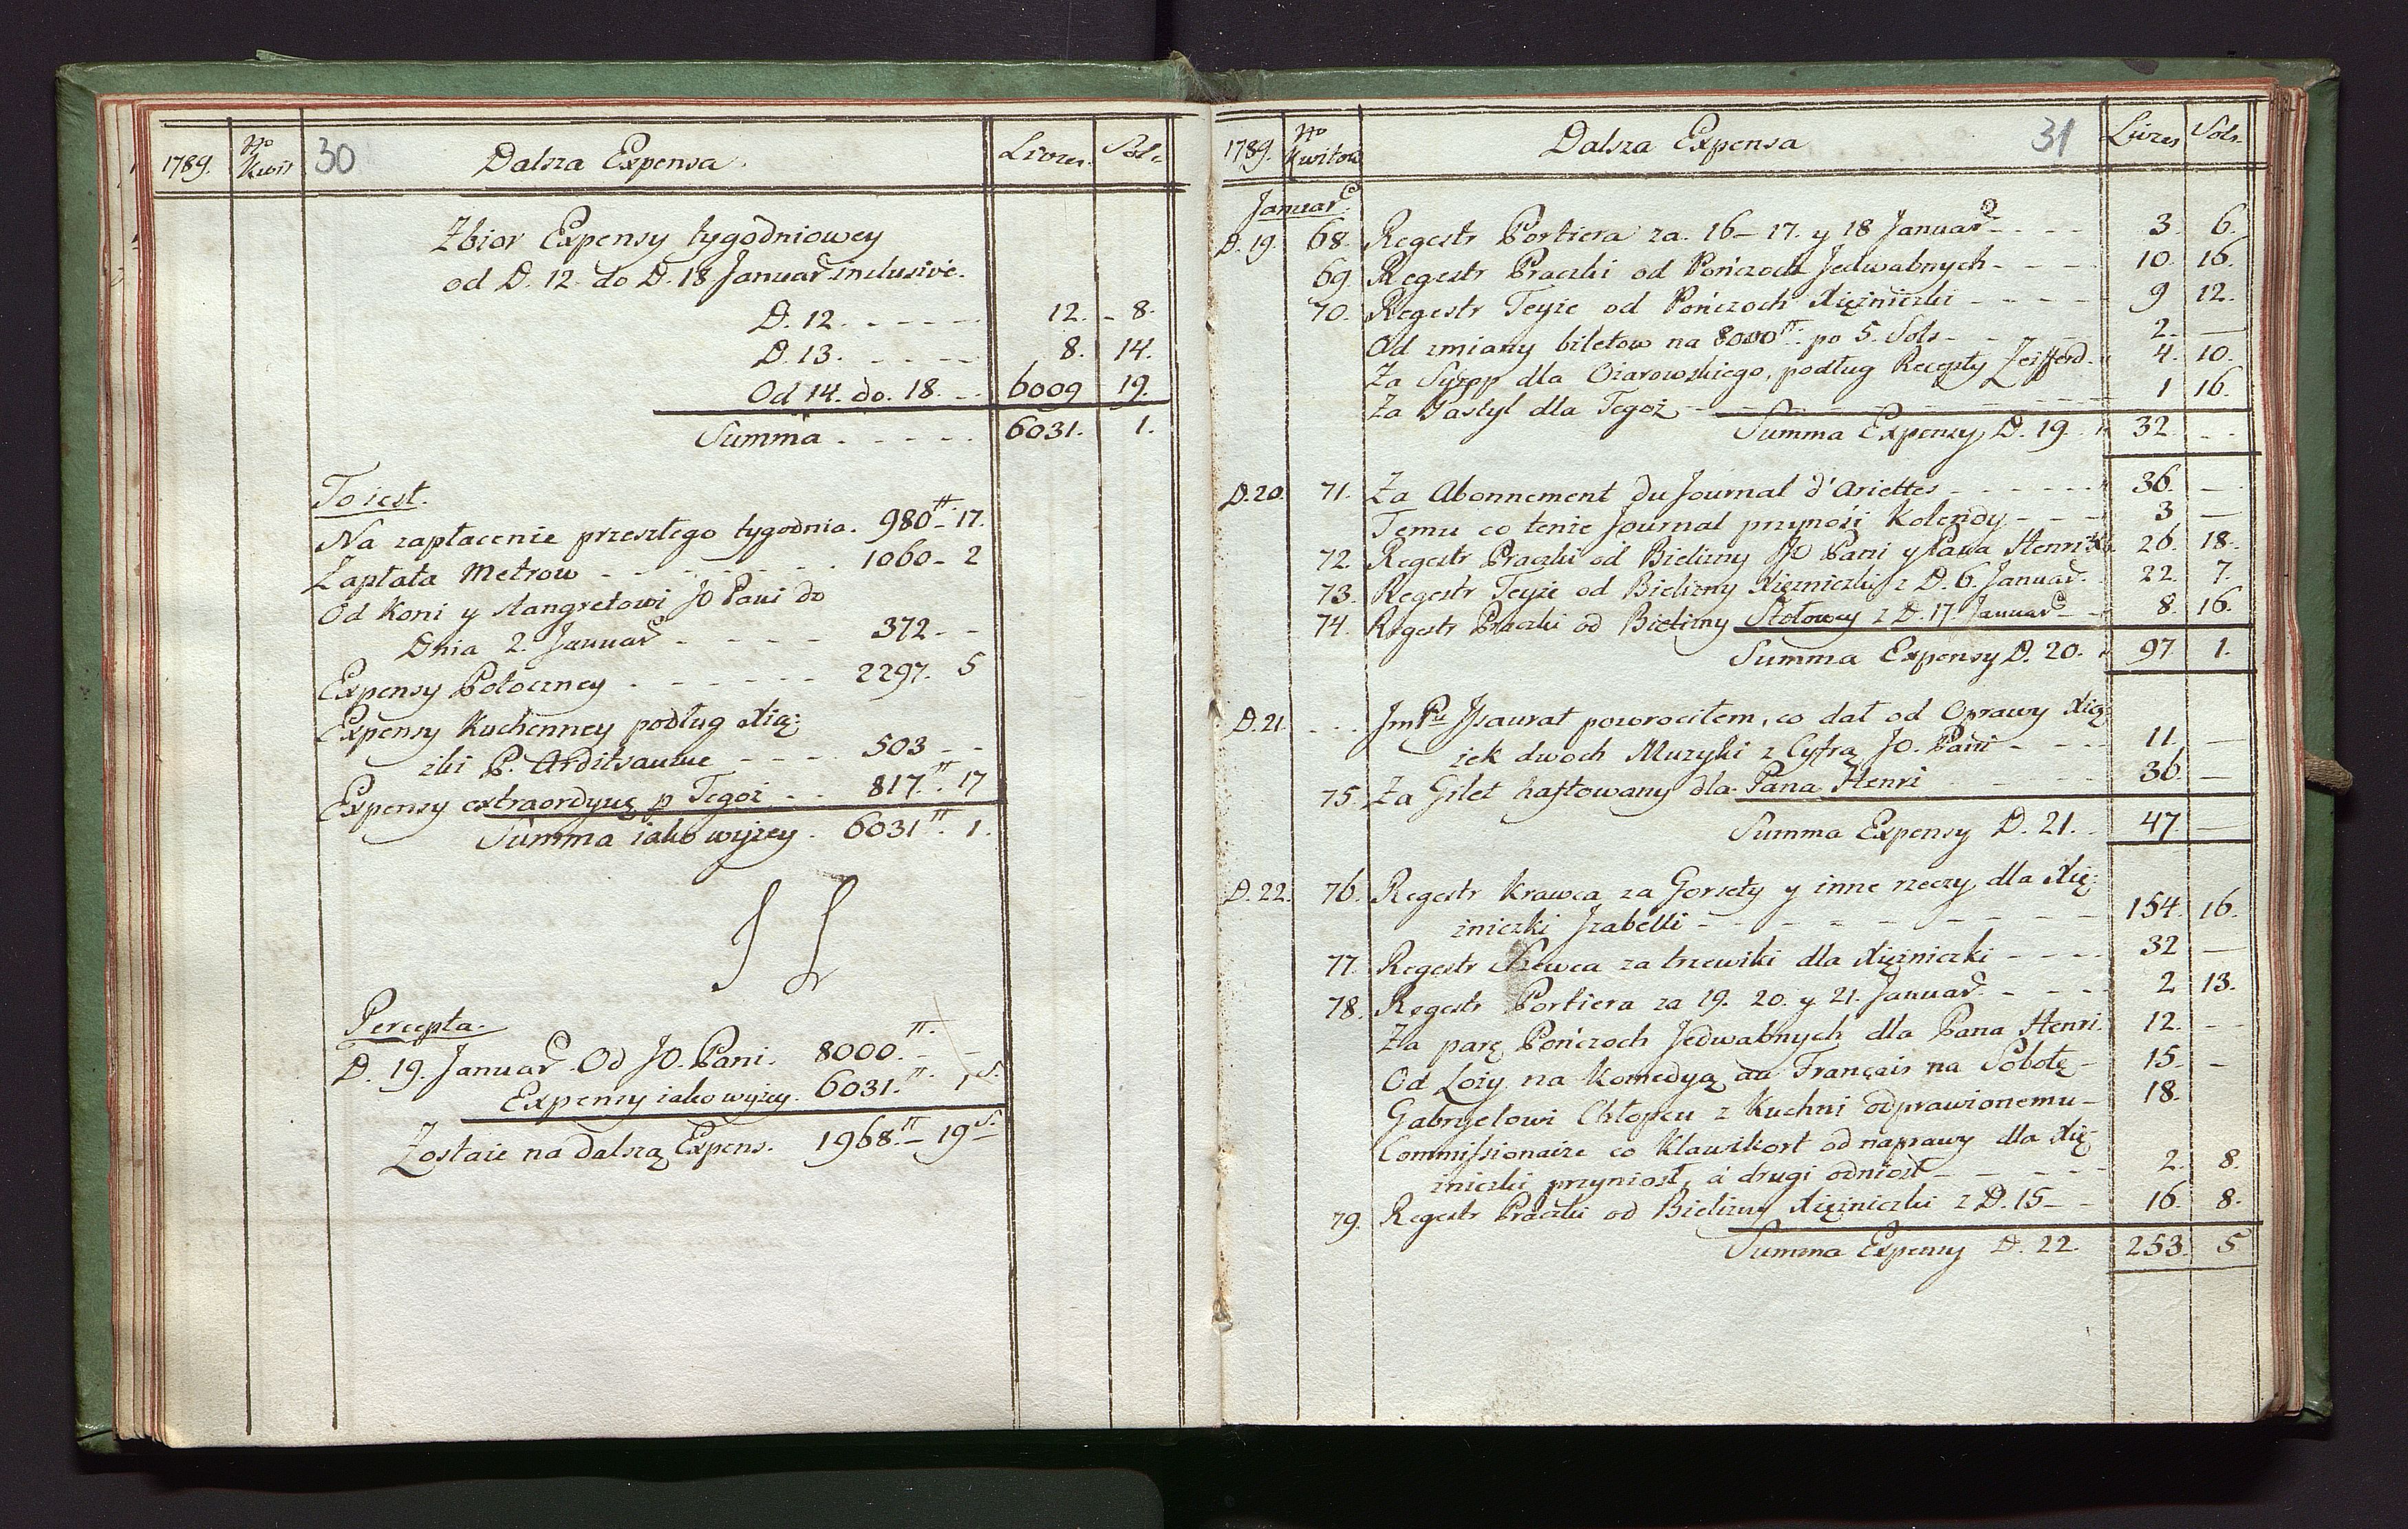 1789. No Kwit 30 Dalsza Expensa Livres. Sols.
Zbior Expensy tygodniowey
od D. 12. do D. 18 Januar. inclusive.
D. 12. - - - - 12. - 8.
D. 13. - - - - 8. 14.
Od 14. do. 18. - - 6009 19.
Summa . - - - . 6031. 1.
To iest.
Na zapłacenie przeszłego tygodnia. 980 tt - 17.
Zapłata Metrow - - - - - - . 1060 - 2
Od Koni y stangretowi JO Pani do
Dnia 2. Januar. - - - - 372 - -
Expensy Potoczney . - - - - - 2297. 5
Expensy Kuchenney podług Xią:
zki P. - - - . 503 - -
Expensy extraordyną p Tegoż - . . 817. tt. 17
Summa iako wyżey . 6031 tt. 1.
Percepta.
D. 19. Januar. Od JO. Pani. 8000. tt. - -
Expensy iako wyżey. 6031. tt. 1 S.
Zostaie na dalszą Expens. 1968. tt - 19 S.
1789. No Kwitow Dalsza Expensa 31 Livres Sols.
Januar.
D. 19. 68. Regestr Portiera za. 16 - 17. y 18 Januar. - . - - 3. 6.
69. Regestr Praczki od Pończoch Jedwabnych - - - - 10. 16.
70. Regestr Teyże od Pończoch Xiężniczki - - - - - 9 12.
Od zmiany biletow na 8000 tt. po 5. Sols - - - 2. —
Za Syrop dla Ożarowskiego, podług Recepty Zeifferd. 4. 10.
Za Pastyl dla Tegoż - - - - - 1 16.
Summa Expensy D. 19 . 32. - -
D. 20. 71. Za Abonnement du Journal d'Ariettes - - - - - - 36. —
Temu co tenże Journal przynosi Kolendy - - - 3 —
72. Regestr Praczki od Bielizny JO Pani y Pana Henri 26. 18.
73. Regestr Teyże od Bielizny Xiężniczki z D. 6. Januar. 22. 7.
74. Regestr Praczki od Bielizny Stołowey z D. 17. Januar - 8. 16.
Summa Expensy D. 20. 97 1.
D. 21. . - - Jm Pu powrociłem, co dał od Oprawy Xią
żek dwoch Muzyki z Cyfrą JO. Pani - - - - 11. —
75. Za Gilet haftowany dla Pana Henri - - - - - 36. —
Summa Expensy D. 21. . 47. —
D. 22. 76. Regestr Krawca za Gorsety y inne rzeczy dla Xię:
żniczki Jzabelli - - - - - - - - - 154. 16.
77. Regestr Szewca za trzewiki dla Xiężniczki - - - - 32 —
78. Regestr Portiera za 19. 20. y 21. Januar. - - - - 2 13.
Za parę Pończoch Jedwabnych dla Pana Henri. 12. - -
Od Loży na Komedyą au Français na Sobotę - 15. -
Gabryelowi Chłopcu z Kuchni odprawionemu - 18.
Commissionaire co Klawikort od naprawy dla Xię
żniczki przyniosł, á drugi odniosł - - - - - 2. 8.
79. Regestr Praczki od Bielizny Xiężniczki z D. 15 - - 16. 8.
Summa Expensy D. 22. 253. 5